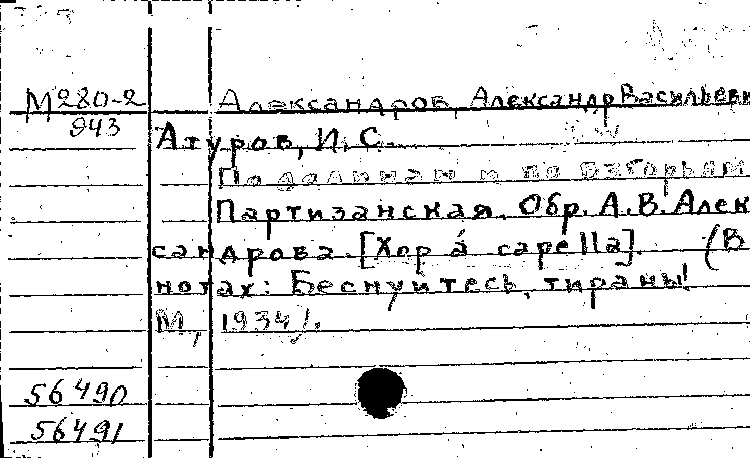 М280-2 Александров, Александр Васильеви
943
Атуров, И. С.
По долинам и по взгорьям
Партизанская. Обр. А.В. Алек
сандрова. [Хор á capella]. (В
нотах: Беснуйтесь, тираны!
М., 1934).
56490
56491